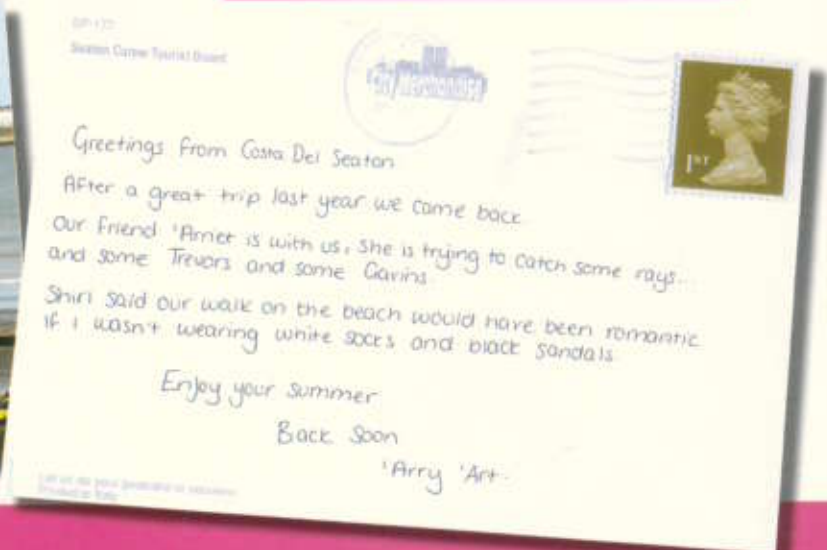 Seaton Carew Tourist Board
Greetings from Costa Del Seaton
After a great trip last year we came back
Our friend 'Arriet is with us. She is trying to catch some rays...
and some Trevors and some Gavins.
Shirl said our walk on the beach would have been romantic
if I wasn't wearing white socks and black sandals
Enjoy your summer
Back Soon
'Arry 'Art.
1ST
Printed in Italy